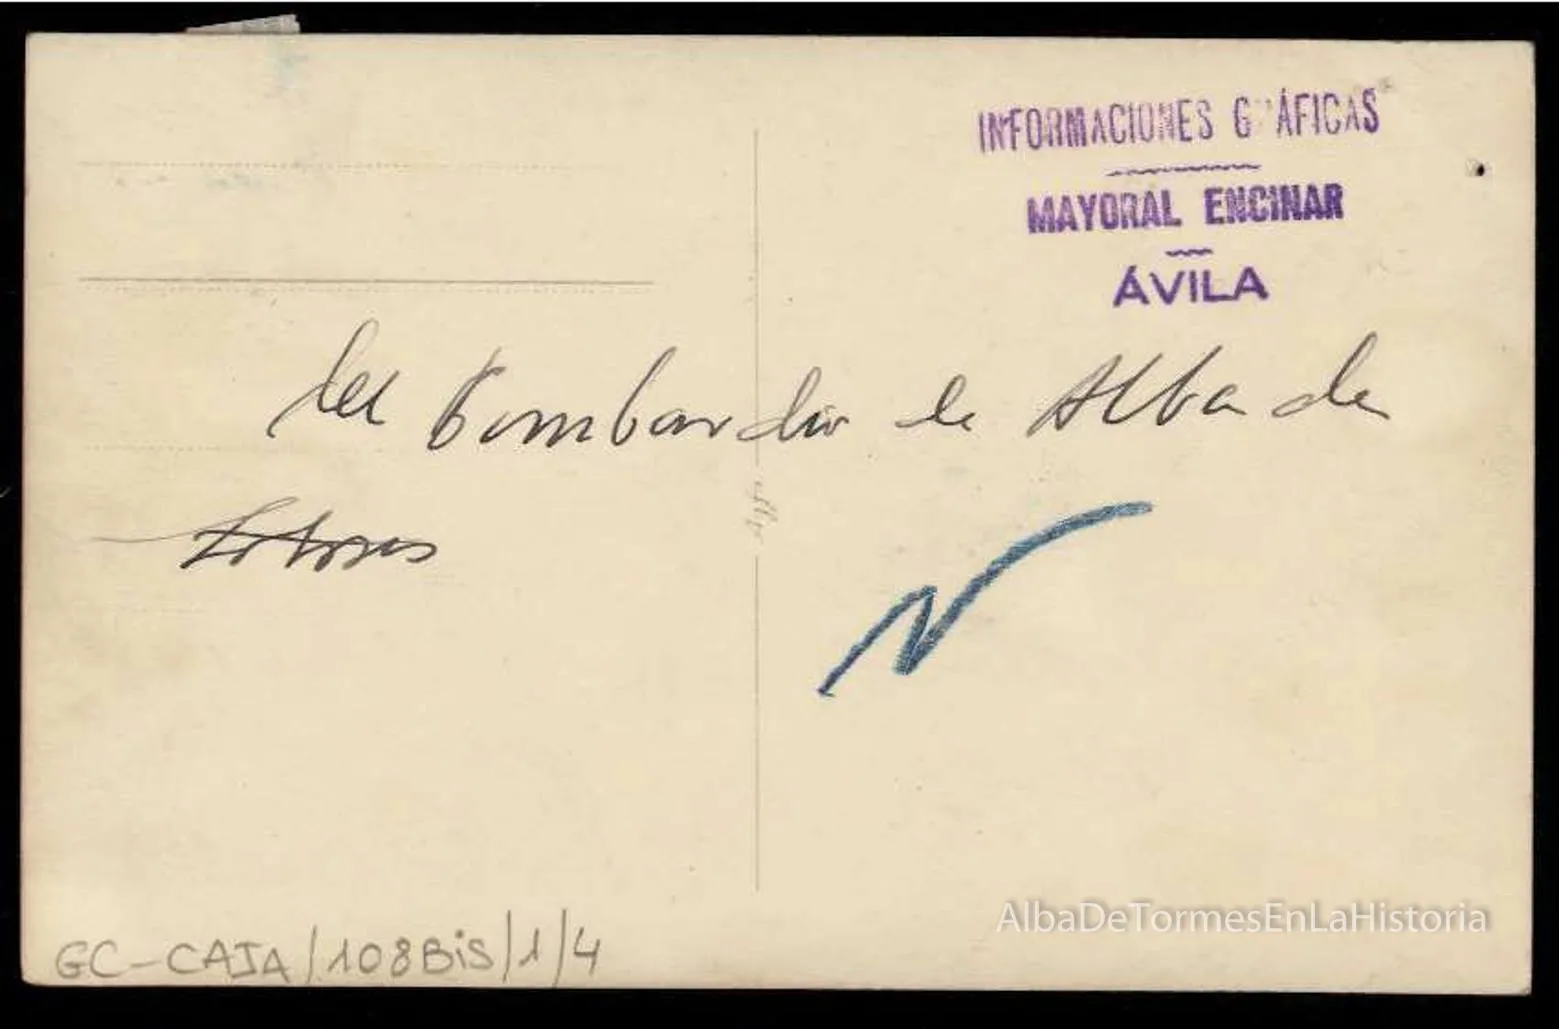 INFORMACIONES GRÁFICAS
MAYORAL ENCINAR
ÁVILA
del Bombardeo de Alba de
GC-CAJA/108BiS/1/4
AlbaDeTormesEnLaHistoria